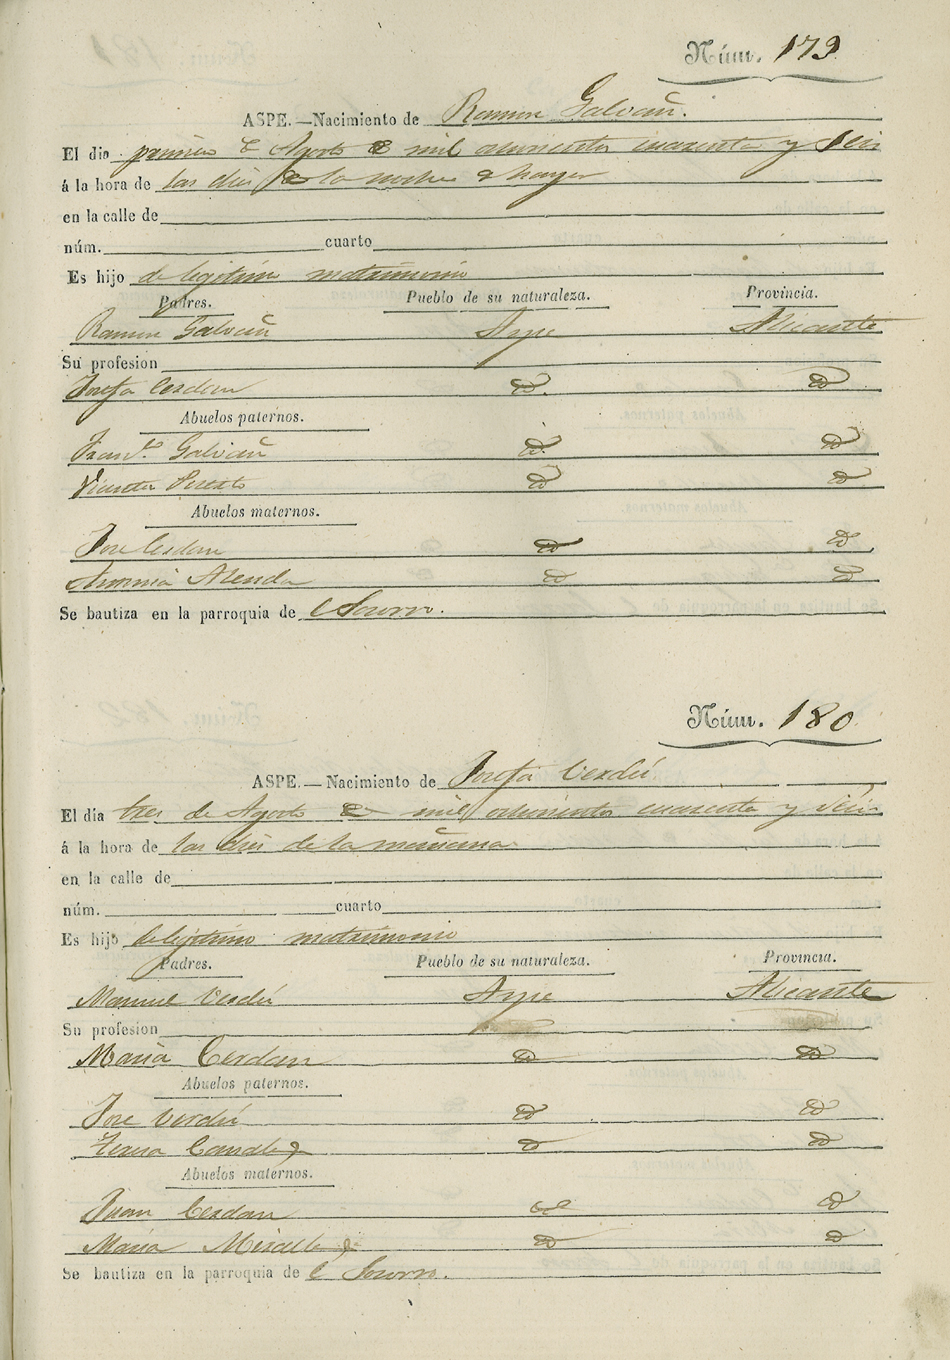 Núm. 179
ASPE.—Nacimiento de Ramon Galvañ.
El dia primero de Agosto de mil ochocientos cuarenta y Seis
á la hora de las diez de la noche de hayer
en la calle de
núm. cuarto
Es hijo de legitimo matrimonio
Padres. Pueblo de su naturaleza. Provincia.
Ramon Galvañ Aspe Alicante
Su profesion
Josefa Cerdan id. id
Abuelos paternos.
Fran.co Galvañ id id
Vicenta id id
Abuelos maternos.
Jose Cerdan id id
Antonia Alenda id id
Se bautiza en la parroquia de el Socorro.
Núm. 180
ASPE.—Nacimiento de Josefa Verdú
El día tres de Agosto de mil ochocientos cuarenta y Seis
á la hora de las de la mañana
en la calle de
núm. cuarto
Es hijo de legitimo matrimonio
Padres. Pueblo de su naturaleza. Provincia.
Manuel Verdú Aspe Alicante
Su profesion
Maria Cerdan id id
Abuelos paternos.
Jose Verdú id id
Teresa id id
Abuelos maternos.
Juan Cerdan id id
Maria Miralles id id
Se bautiza en la parroquia de el Socorro.